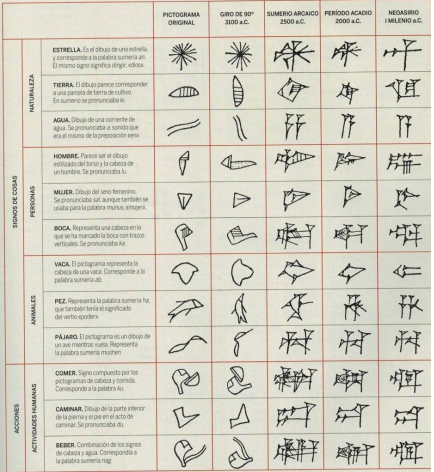 PICTOGRAMA
ORIGINAL
GIRO DE 90º
3100 a.C.
SUMERIO ARCAICO
2500 a.C.
PERÍODO ACADIO
2000 a.C.
NEOASIRIO
I MILENIO a.C.
SIGNOS DE COSAS
NATURALEZA
ESTRELLA. Es el dibujo de una estrella,
y corresponde a la palabra sumeria an.
El mismo signo significa dingir, «dios».
TIERRA. El dibujo parece corresponder
a una parcela de tierra de cultivo.
En sumerio se pronunciaba ki.
AGUA. Dibujo de una corriente de
agua. Se pronunciaba a, sonido que
era el mismo de la preposición «en».
PERSONAS
HOMBRE. Parece ser el dibujo
estilizado del torso y la cabeza de
un hombre. Se pronunciaba lu.
MUJER. Dibujo del sexo femenino.
Se pronunciaba sal, aunque también se
usaba para la palabra munus, «mujer».
BOCA. Representa una cabeza en la
que se ha marcado la boca con trazos
verticales. Se pronunciaba ka.
ANIMALES
VACA. El pictograma representa la
cabeza de una vaca. Corresponde a la
palabra sumeria ab.
PEZ. Representa la palabra sumeria ha,
que también tenía el significado
del verbo «poder».
PÁJARO. El pictograma es un dibujo de
un ave mientras vuela. Representa
la palabra sumeria mushen.
ACCIONES
ACTIVIDADES HUMANAS
COMER. Signo compuesto por los
pictogramas de cabeza y comida.
Corresponde a la palabra ku.
CAMINAR. Dibujo de la parte inferior
de la pierna y el pie en el acto de
caminar. Se pronunciaba du.
BEBER. Combinación de los signos
de cabeza y agua. Correspondía a
la palabra sumeria nag.